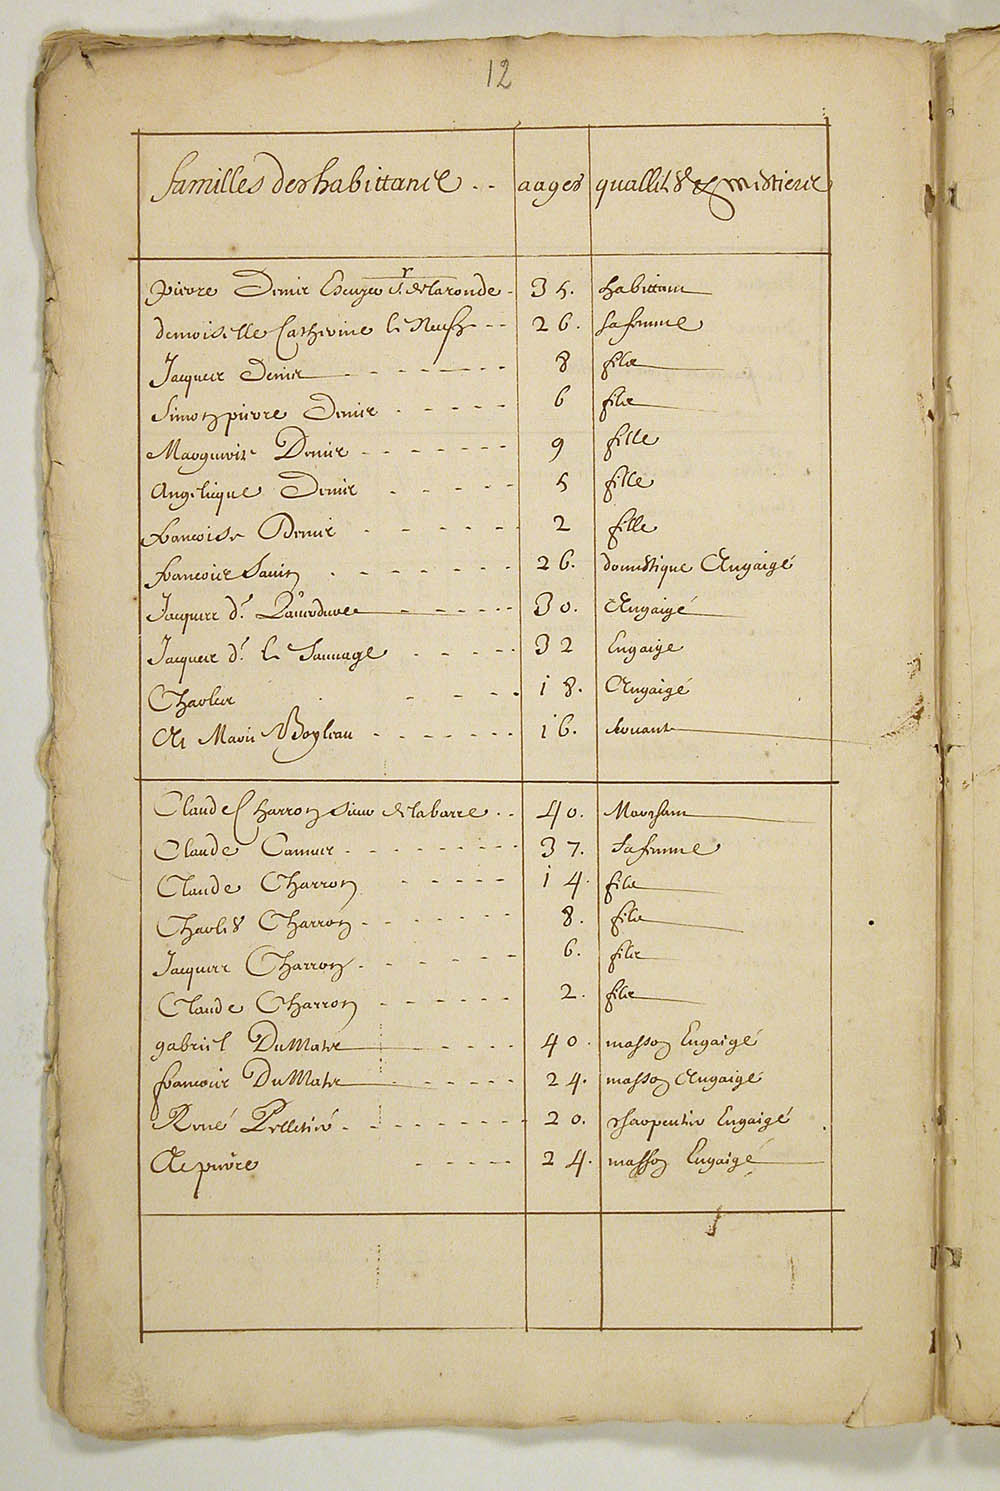 12
familles des habittans .. aages quallités & mestiers
pierre Denis Escuyer Sr delaronde - 35. habittans
demoiselle Catherine le Neuf -- 26. sa femme
Jacques Denis 8 filz
Simon pierre Denis 6 filz
Marguerite Denis 9 fille
Angelicque Denis 5 fille
francoise Denis 2 fille
francois Sauin 26. domestique Engaigé
Jacques dt. 30. Engaigé
Jacques dt. le Sauuage 32 Engaige
Charles 18. Engaigé
Et Marie Boyleau 16. seruante
Claude Charron sieur delabarre .. 40. Marchant
Claude Camus 37. sa femme
Claude Charron 14. filz
Charles Charron 8. filz
Jacques Charron 6. filz
Claude Charron 2. filz
gabriel DuMats 40. masson Engaigé
francois DuMats 24. masson Engaigé
René Pelletié 20. charpentier Engaigé
Et pierre 24. masson Engaigé